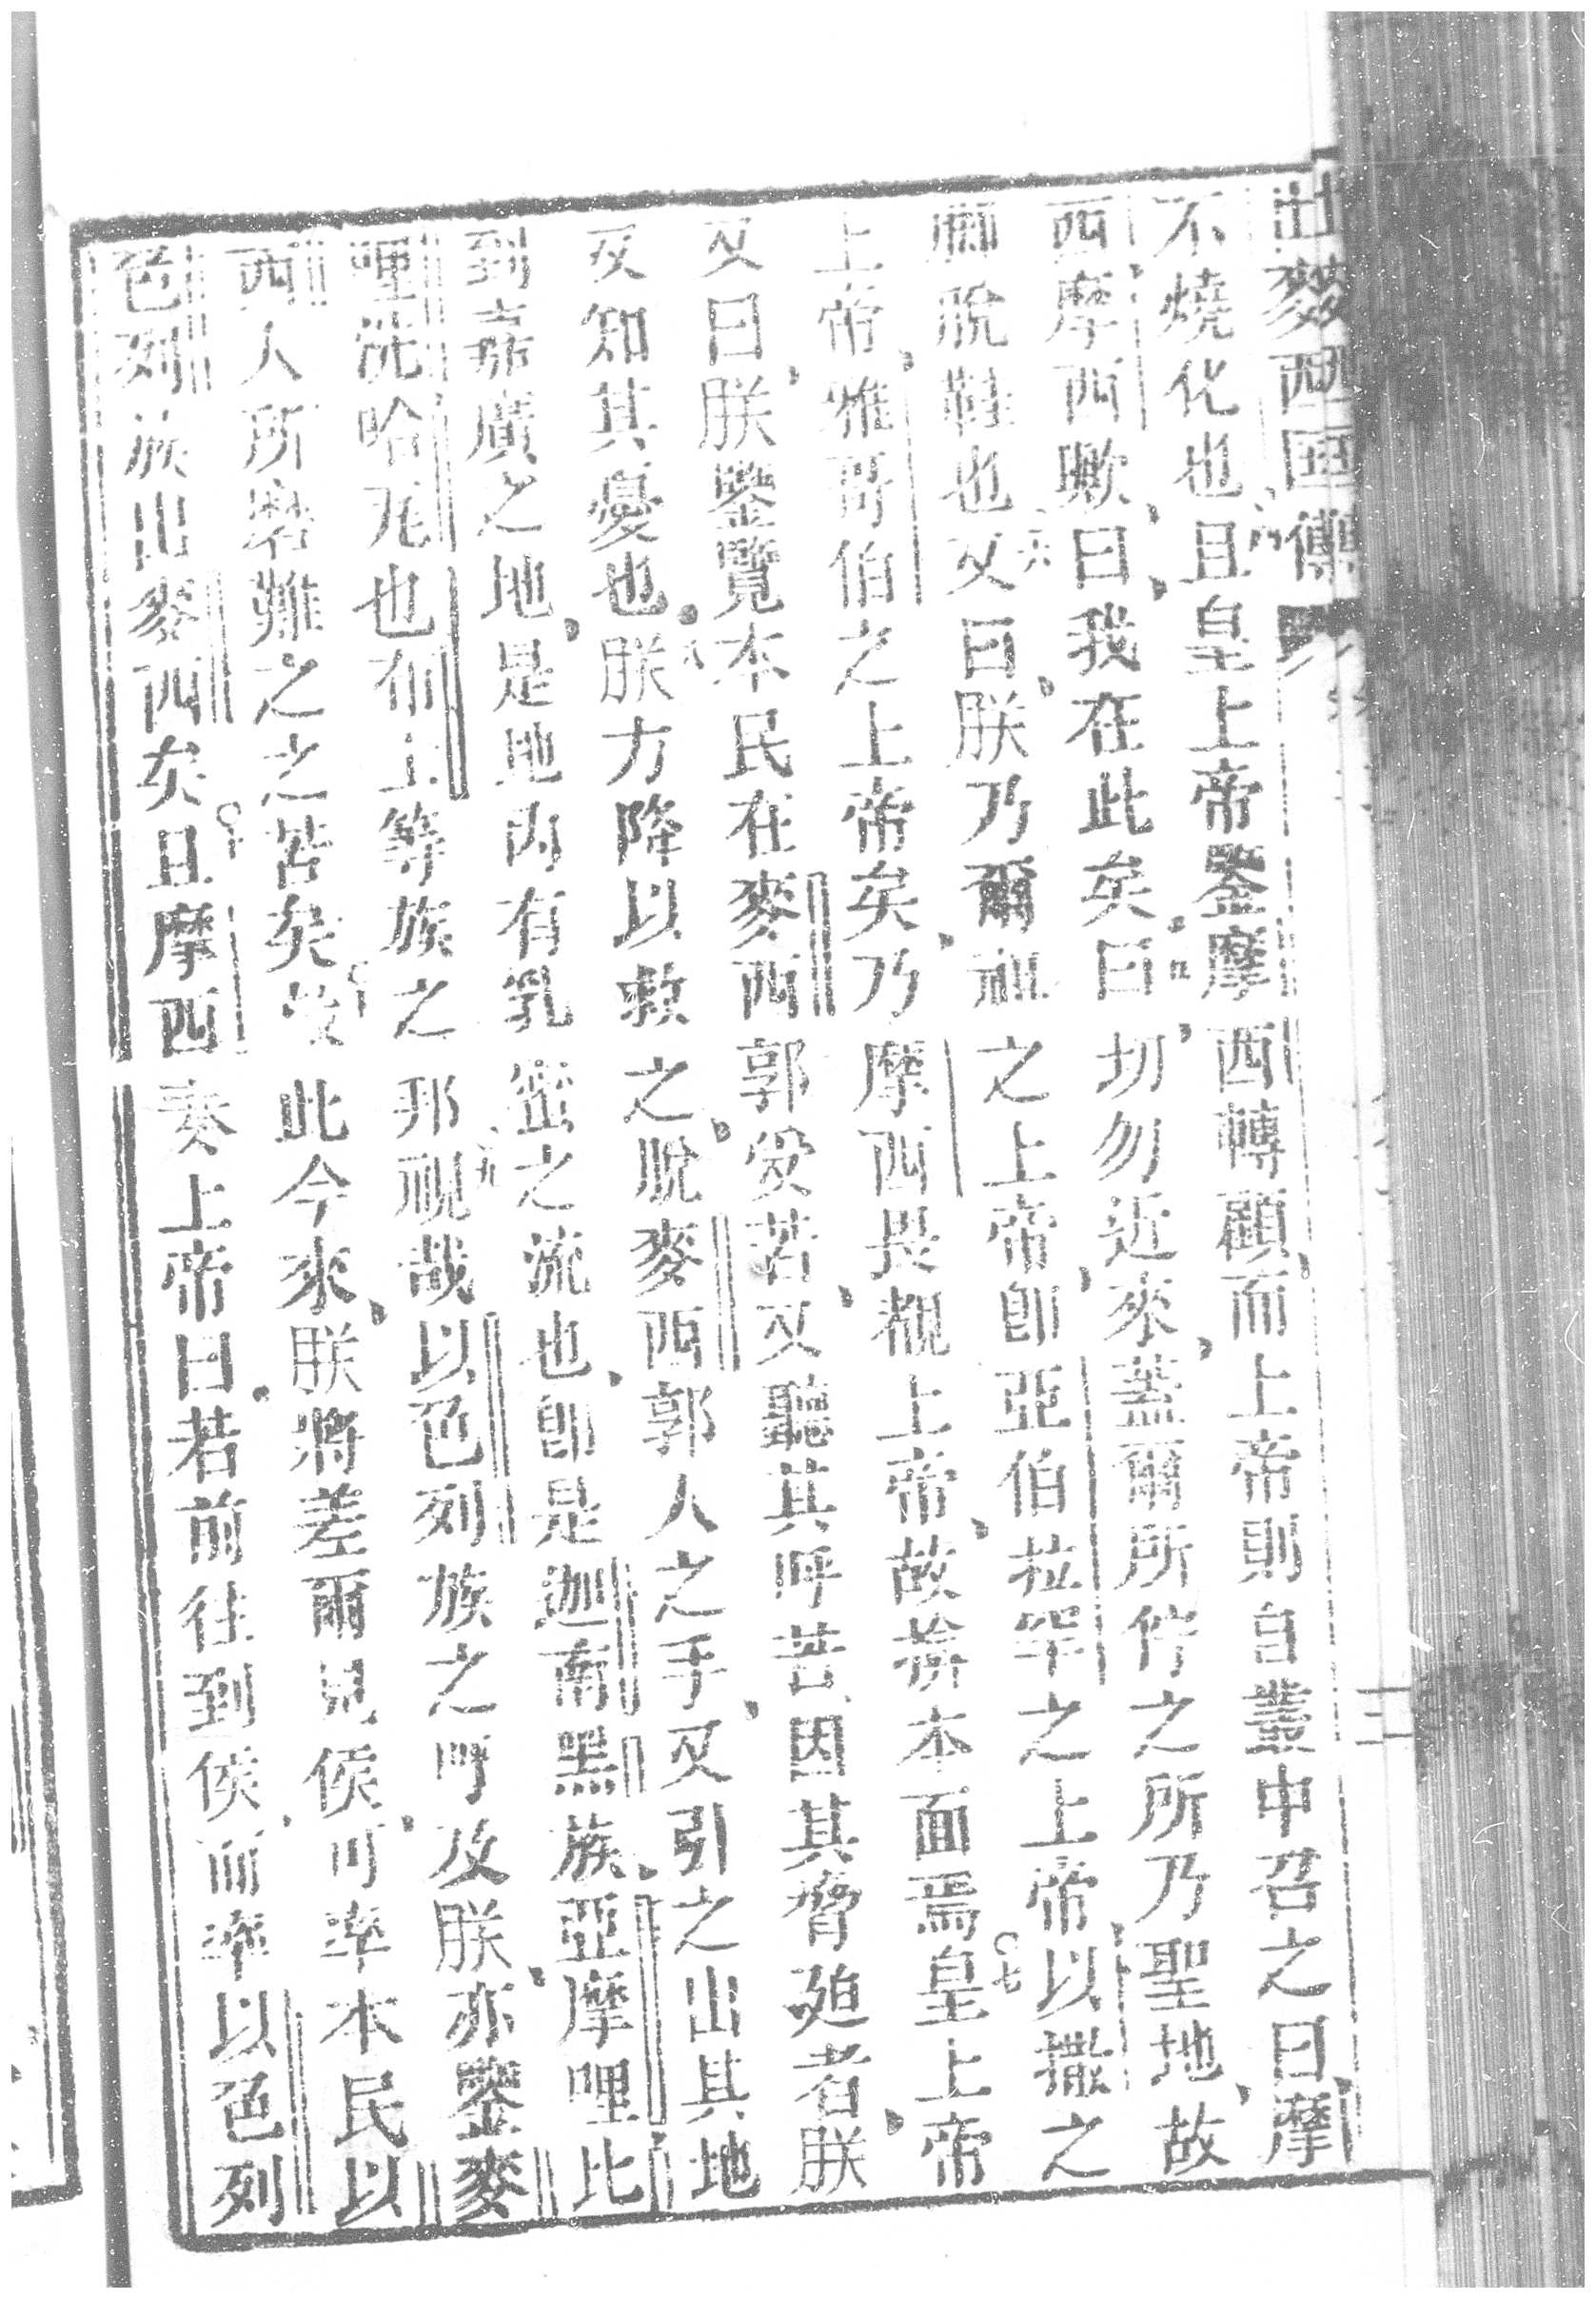 出麥西國傳
三
不燒化也且皇上帝鑒摩西轉顧而上帝則自叢中召之曰摩
西摩西歟曰我在此矣曰切勿近來蓋爾所佇之所乃聖地故
腳脫鞋也又曰朕乃爾祖之上帝卽亞伯拉罕之上帝以撒之
上帝雅哥伯之上帝矣乃摩西畏覩上帝故揜本面焉皇上帝
又曰朕鑒覽本民在麥西郭受苦又聽其呼苦因其脅廹者朕
又知其憂也朕方降以救之脫麥西郭人之手又引之出其地
到嘉廣之地是地內有乳蜜之流也卽是迦南黑族亞摩哩比
哩洗哈死也布士等族之郭視哉以色列族之呼及朕亦鑒麥
西人所磨難之之苦矣故此今來朕將差爾見侯可率本民以
色列族出麥西矣且摩西奏上帝曰若前往到侯而率以色列